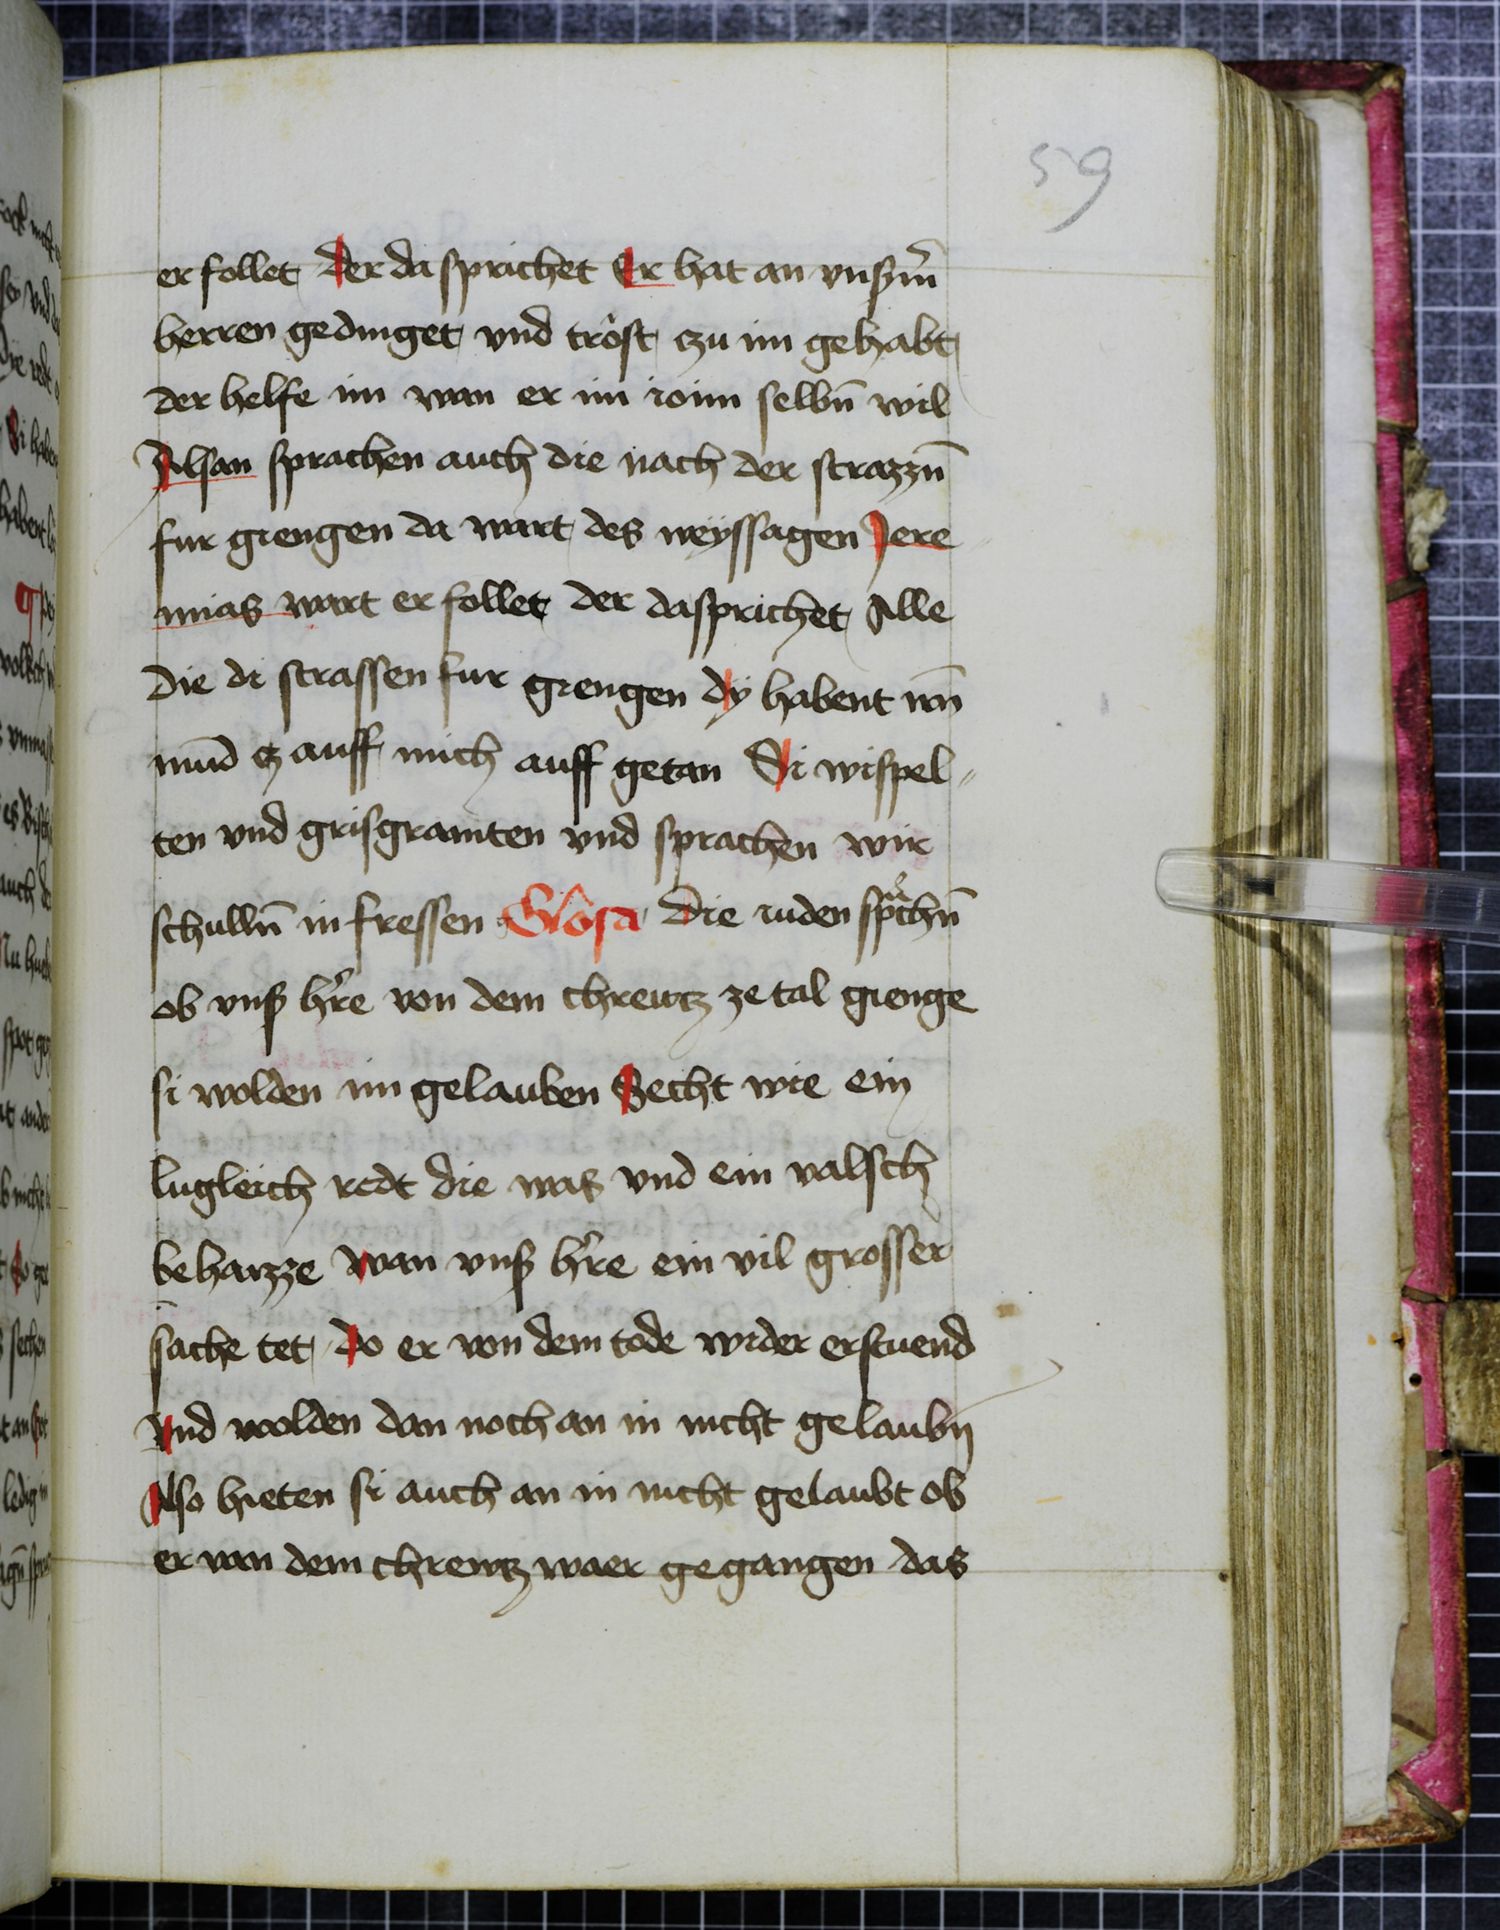 59
er follet Der da sprichet Er hat an vnsßm̄
herren gedinget vnd trôst czu im gehabt
der helfe im wan er im ioim selbn̄ wil
Alsan sprachen auch die nach der strazzn̄
fur giengen da wart des weyssagen Jere
mias wort er follet der dasprichet Alle
die di strassen fur giengen Dÿ habent irn̄
mūd cz auff mich auff getan Si wispel„
ten vnd grisgramten vnd sprachen wir
schulln̄ in fressen Glôsa Die iuden sprͣchn̄
ob vnsß hr̄e von dem chrewtz ze tal gienge
si wolden im gelauben Secht wie ein
lugleich redt die was vnd ein valsch
behaizze wan vnsß hr̄e ein vil grosser
sache tet Do er von dem tode wider erstuend
Vnd wolden dan noch an in nicht gelaubn̄
Also hieten si auch an in nicht gelaubt ob
er van dem chrewtz waer gegangen das